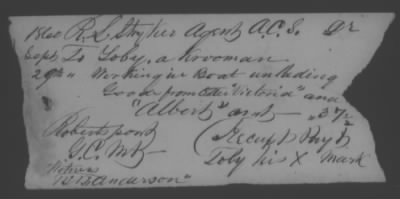 1860 R L Stryker Agent A.C.S. Dr
Sept To Toby, a Krooman
29th " Working in Boat unloading
Goods from "Victoria" and
"Albert" " 37½
Robertsport Receipt
G.C.M.
Toby his X Mark
Witness
Anderson"